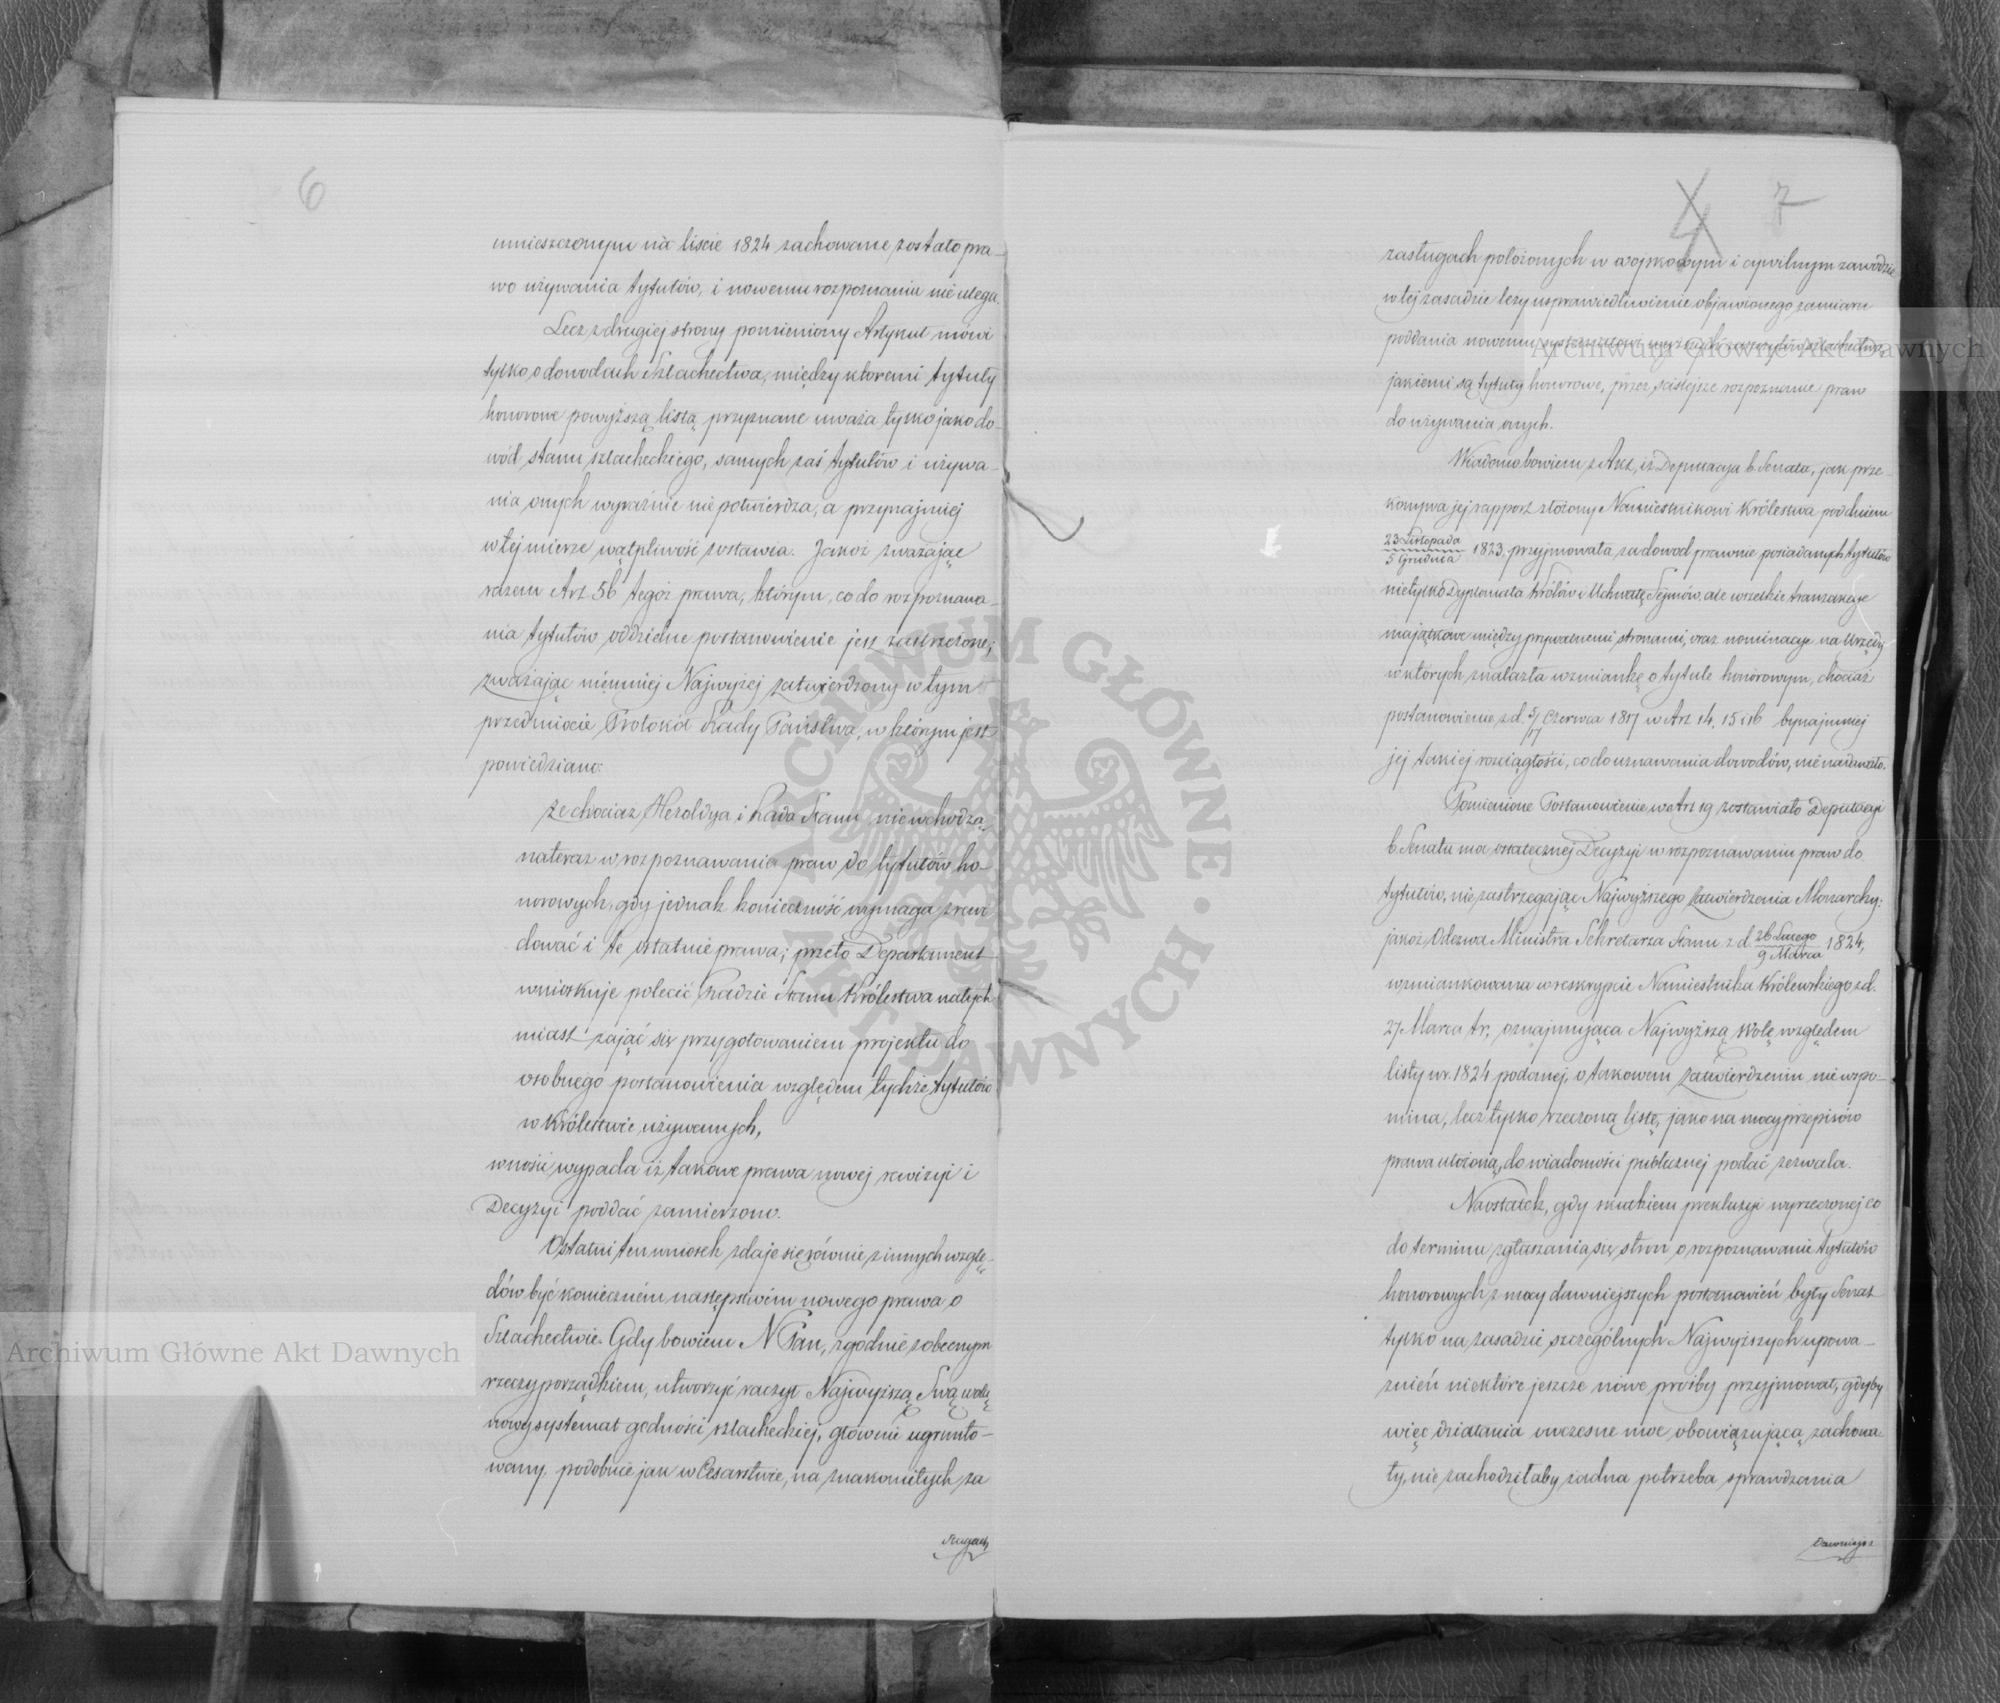 6
umieszczonym na liście 1824 zachowane zostało pra-
wo używania tytułów, i nowemu rozpoznaniu nie ulega.
Lecz z drugiej strony pomieniony Artykuł mówi
tylko o dowodach Szlachectwa, między któremi tytuły
honorowe powyższą listą przyznane uważa tylko jako do-
wód stanu szlacheckiego, samych zaś tytułów i używa-
nia onych wyraźnie nie potwierdza, a przynajmniej
w tej mierze wątpliwość zostawia. Jakoż zważając
razem Art 56 tegoż prawa, którym, co do rozpoznawa-
nia tytułów oddzielne postanowienie jest zastrzeżone;
zważając niemniej Najwyżej zatwierdzony w tym
przedmiocie Protokół Rady Państwa, w którym jest
powiedziano:
że chociaż Heroldya i Rada Stanu nie wchodzą
nateraz w rozpoznawania praw do tytułów ho-
norowych, gdy jednak konieczność wymaga zrewi
dować i te ostatnie prawa; przeto Departament
wnioskuje polecić Radzie Stanu Królestwa natych
miast zająć się przygotowaniem projektu do
osobnego postanowienia względem tychże tytułów
w Królestwie używanych,
wnosić wypada iż takowe prawa nowej rewizyi i
Decyzyi poddać zamierzono.
Ostatni ten wniosek zdaje się równie z innych wzglę-
dów być konieczném następstwém nowego prawa o
Szlachectwie. Gdy bowiem N Pan, zgodnie z obecnym
rzeczy porządkiem, utworzyć raczył Najwyższą Swą wolą
nowy systemat godności szlacheckiej, głównie ugrunto-
wany, podobnie jak w Cesarstwie, na znakomitych za
sługach
4 7
zasługach położonych w wojskowym i cywilnym zawodzie
w tej zasadzie leży usprawiedliwienie objawionego zamiaru
poddania nowemu systematowi wszelkich zaszczytów szlachectwa,
jakiemi są tytuły honorowe, przez ściślejsze rozpoznanie praw
do używania onych.
Wiadomo bowiem z Akt, iż Deputacja b. Senatu, jak prze-
konywa jej rapport złożony Namiestnikowi Królestwa pod dniem
23 Listopada / 5 Grudnia 1823, przyjmowała za dowód prawnie posiadanych tytułów
nietylko Dyplomata Królów i Uchwały Sejmów, ale wszelkie tranzakcje
majątkowe między prywatnemi stronami, oraz nominacje na Urzędy
w których znalazła wzmiankę o tytule honorowym, chociaż
postanowienie z d. 5/17 Czerwca 1817 w Art 14, 15 i 16 bynajmniej
jej takiej rozciągłości, co do uznawania dowodów, nie nadawało.
Pomienione Postanowienie w Art 19 zostawiało Deputacji
b. Senatu moc ostatecznej Decyzyi w rozpoznawaniu praw do
tytułów, nie zastrzegając Najwyższego zatwierdzenia Monarchy;
jakoż Odezwa Ministra Sekretarza Stanu z d. 26 Lutego / 9 Marca 1824,
wzmiankowana w reskrypcie Namiestnika Królewskiego z d.
27 Marca t.r., oznajmująca Najwyższą Wolę względem
listy w r. 1824 podanej, o takowem zatwierdzeniu nie wspo-
mina, lecz tylko rzeczoną listę, jako na mocy przepisów
prawa ułożoną, do wiadomości publicznej podać zezwala.
Naostatek, gdy skutkiem prekluzyi wyrzeczonej co
do terminu zgłaszania się stron o rozpoznawanie tytułów
honorowych z mocy dawniejszych postanowień były Senat
tylko na zasadzie szczególnych Najwyższych upowa-
żnień niektóre jeszcze nowe prośby przyjmował, gdyby
więc działania owczesne moc obowiązującą zachowa-
ły, nie zachodziłaby żadna potrzeba sprawdzania
Archiwum Główne Akt Dawnych
Archiwum Główne Akt Dawnych
ARCHIWUM GŁÓWNE AKT DAWNYCH